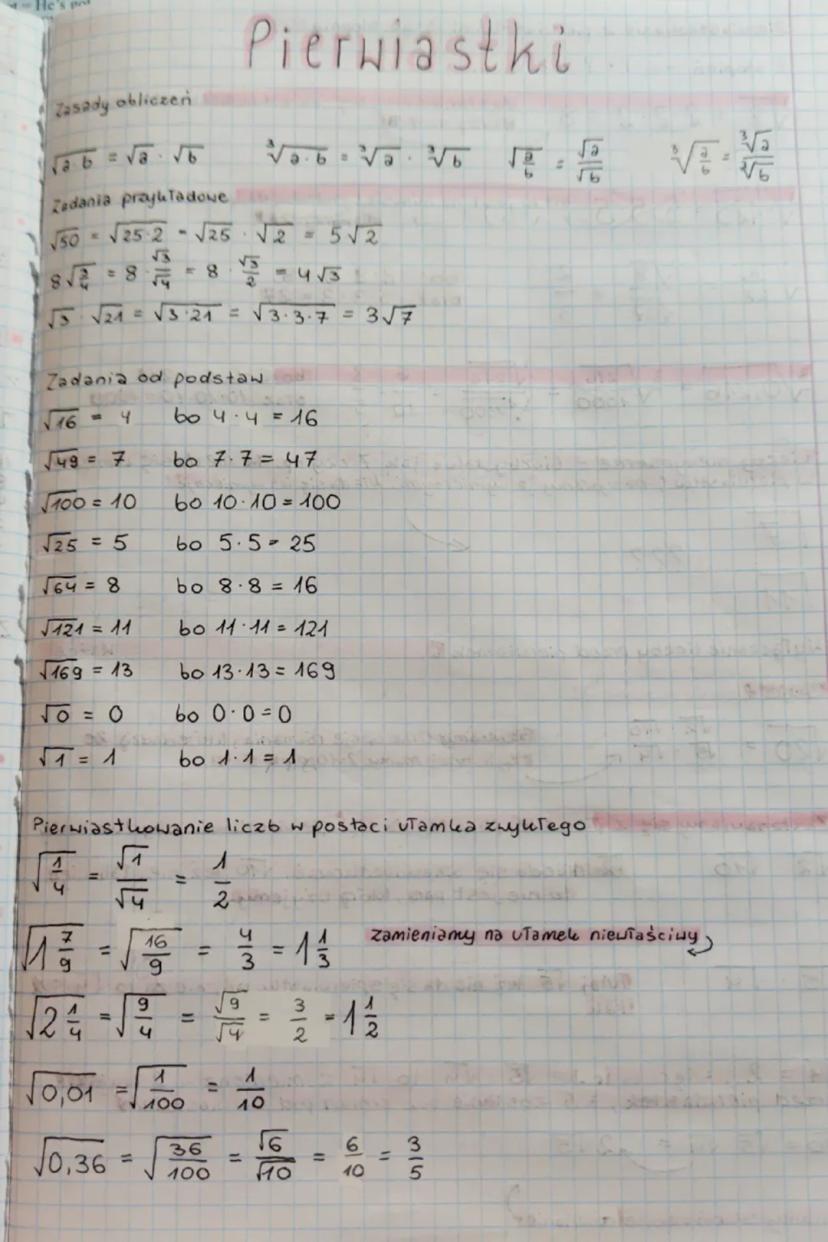 Pierwiastki
Zasady obliczeń
√(a·b) = √a · √b    ∛(a·b) = ∛a · ∛b    √(a/b) = √a/√b    ∛(a/b) = ∛a/∛b
Zadania przykładowe
√50 = √(25·2) = √25 · √2 = 5√2
8√(3/4) = 8 · √3/√4 = 8 · √3/2 = 4√3
√3 · √21 = √(3·21) = √(3·3·7) = 3√7
Zadania od podstaw
√16 = 4 bo 4·4 = 16
√49 = 7 bo 7·7 = 47
√100 = 10 bo 10·10 = 100
√25 = 5 bo 5·5 = 25
√64 = 8 bo 8·8 = 16
√121 = 11 bo 11·11 = 121
√169 = 13 bo 13·13 = 169
√0 = 0 bo 0·0 = 0
√1 = 1 bo 1·1 = 1
Pierwiastkowanie liczb w postaci ułamka zwykłego
√(1/4) = √1/√4 = 1/2
√(1 7/9) = √(16/9) = 4/3 = 1 1/3 zamieniamy na ułamek niewłaściwy
√(2 1/4) = √(9/4) = √9/√4 = 3/2 = 1 1/2
√0,01 = √(1/100) = 1/10
√0,36 = √(36/100) = √6/√10 = 6/10 = 3/5